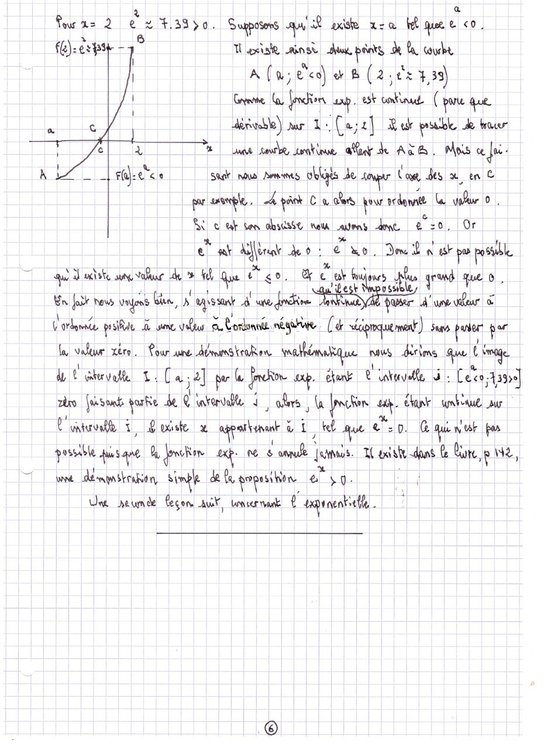 Pour x = 2 e² ≈ 7.39 > 0. Supposons qu'il existe x = a tel que eᵃ < 0.
F(2) = e² ≈ 7,39
B
Il existe ainsi deux points de la courbe
A (a ; eᵃ < 0) et B (2 ; e² ≈ 7,39)
Comme la fonction exp. est continue (parce que
dérivable) sur I : [a ; 2] il est possible de tracer
une courbe continue allant de A à B. Mais ce fai-
a
C
c
2
x
A
F(a) = eᵃ < 0
sant nous sommes obligés de couper l'axe des x, en C
par exemple. Le point C a alors pour ordonnée la valeur 0.
Si c est son abscisse nous avons donc eᶜ = 0. Or
eˣ est différent de 0 : eˣ ≠ 0. Donc il n'est pas possible
qu'il existe une valeur de x tel que eˣ ≤ 0. Et eˣ est toujours plus grand que 0.
qu'il est impossible
En fait nous voyons bien, s'agissant d'une fonction continue, de passer d'une valeur à
l'ordonnée positive à une valeur à l'ordonnée négative (et réciproquement) sans passer par
la valeur zéro. Pour une démonstration mathématique nous dirions que l'image
de l'intervalle I : [a ; 2] par la fonction exp. étant l'intervalle i : [eᵃ<0 ; 7,39>0]
zéro faisant partie de l'intervalle i, alors, la fonction exp. étant continue sur
l'intervalle I, il existe x appartenant à I, tel que eˣ = 0. Ce qui n'est pas
possible puisque la fonction exp. ne s'annule jamais. Il existe dans le livre, p 142,
une démonstration simple de la proposition eˣ > 0.
Une seconde leçon suit, concernant l'exponentielle.
6